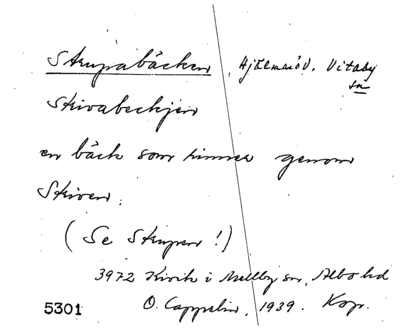 Strupabäcken, Hjälmaröd. Vitaby
sn
en bäck som rinner genom
(Se Strupen!)
3972 Kivik i Mellby sn, Albo hd
5301 O. Cappelin, 1939. Kop.